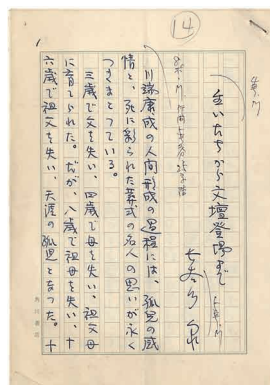 14
生いたちから文壇登場まで
川端康成の人間形成の過程には、孤児の感
情と、死に彩られた葬式の名人の思いが永く
つきまとっている。
三歳で父を失い、四歳で母を失い、祖父母
に育てられた。だが、八歳で祖母を失い、十
六歳で祖父を失い、天涯の孤児となった。十
角川書店